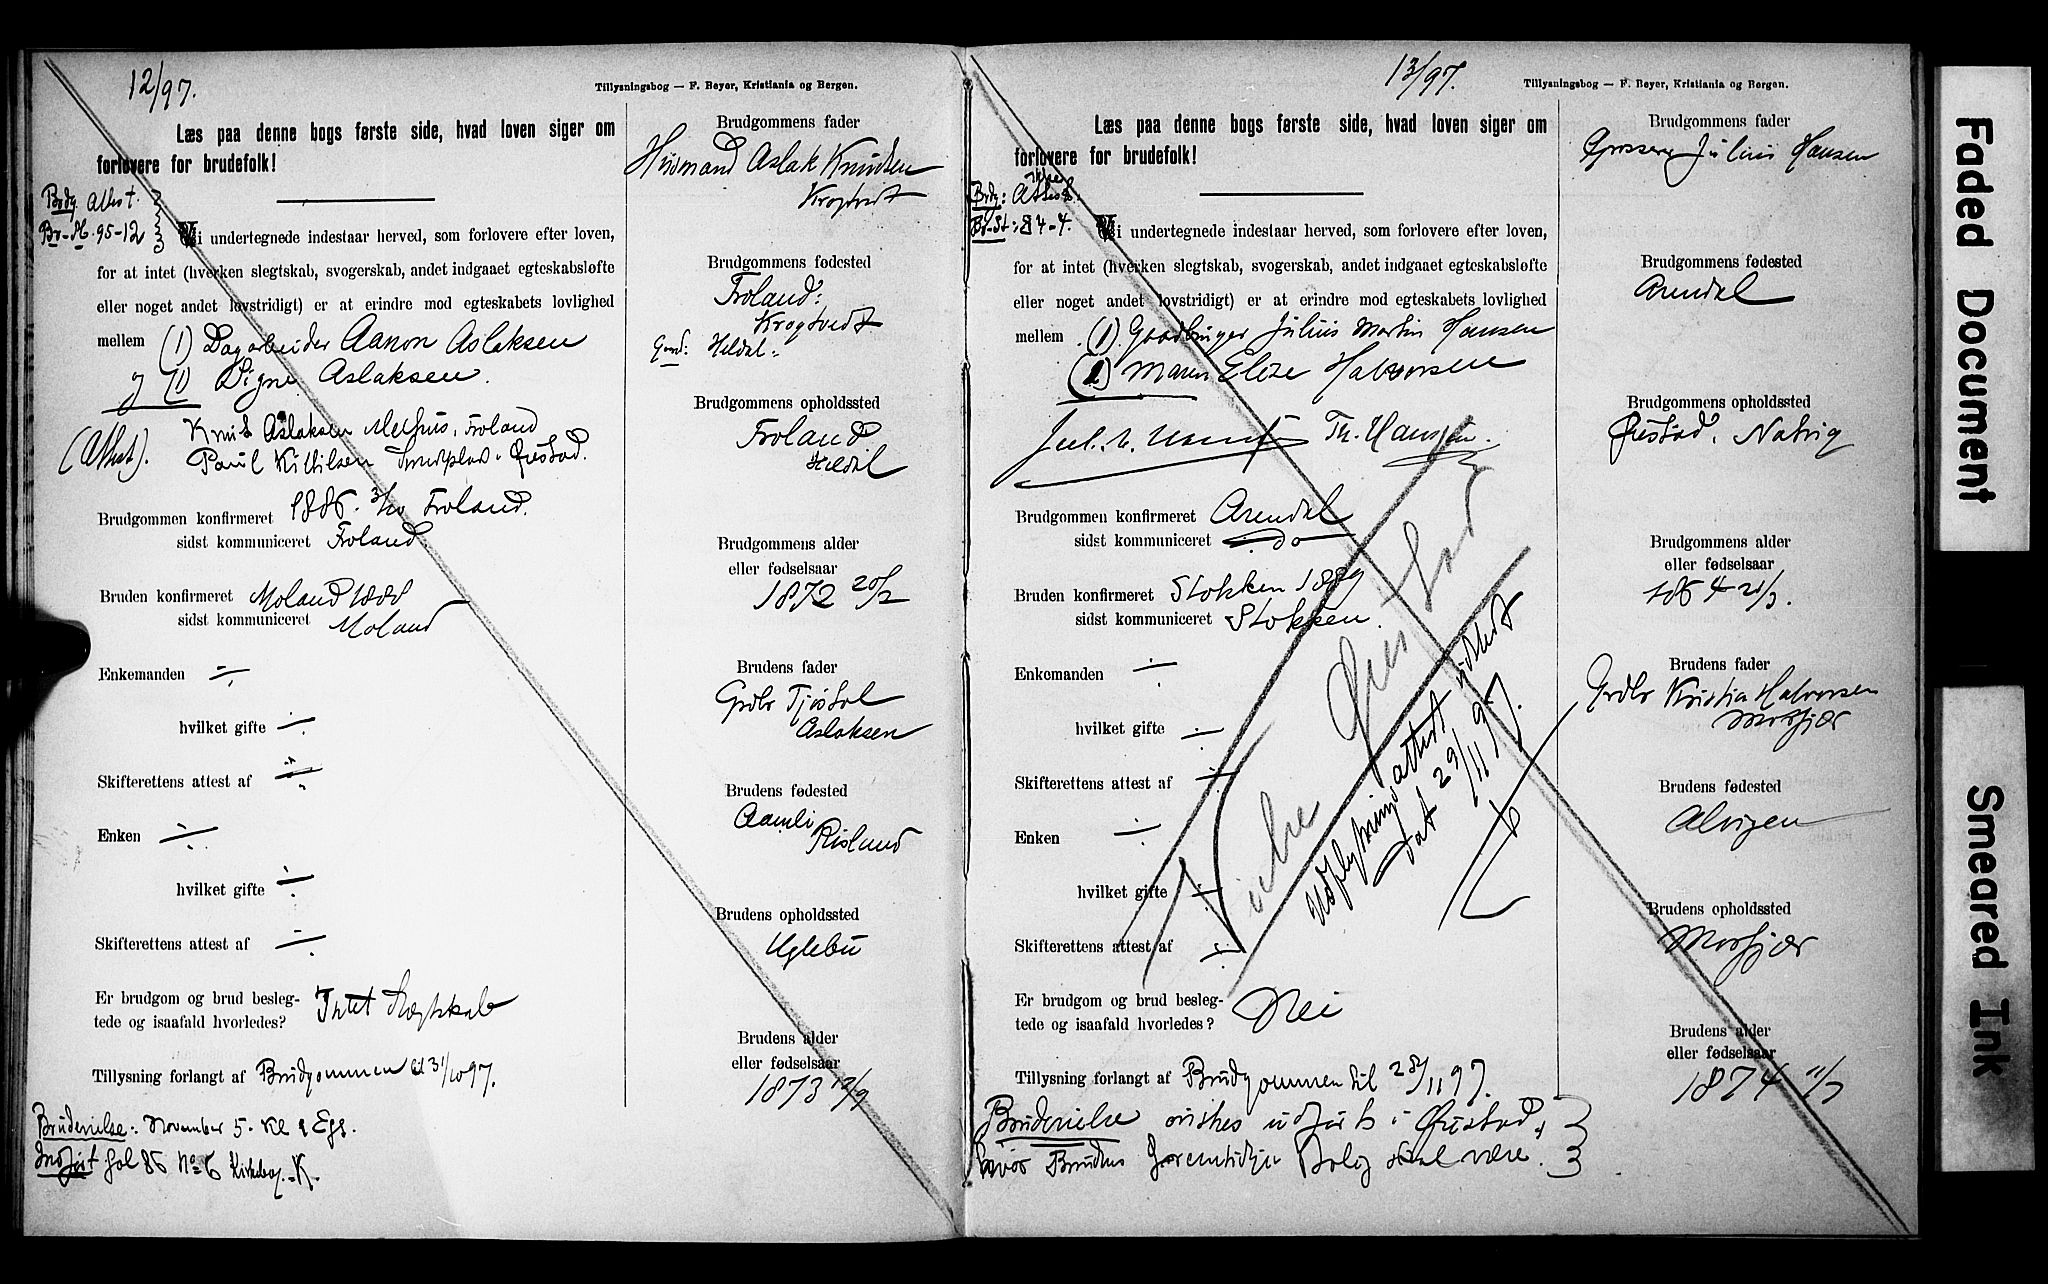 12/97.
Tillysningsbog — F. Beyer, Kristiania og Bergen.
Læs paa denne bogs første side, hvad loven siger om
forlovere for brudefolk!
Brdg. Attest.
95-12
Vi undertegnede indestaar herved, som forlovere efter loven,
for at intet (hverken slegtskab, svogerskab, andet indgaaet egteskabsløfte
eller noget andet lovstridigt) er at erindre mod egteskabets lovlighed
mellem (1) Dagarbeider Aanon Aslaksen
og (1) Signe Aslaksen.
Knut Aslaksen Froland
(Attest). Paul Kittilsen Øiestad.
Brudgommen konfirmeret 1886. 3/10 Froland.
sidst kommuniceret Froland.
Bruden konfirmeret Moland 1888
sidst kommuniceret Moland
Enkemanden ÷
hvilket gifte ÷
Skifterettens attest af ÷
Enken ÷
hvilket gifte ÷
Skifterettens attest af ÷
Er brudgom og brud besleg-
tede og isaafald hvorledes? Intet Slægtskab
Tillysning forlangt af Brudgommen d 31/10 97.
Brudevielse: November 5. Kl 9 Egs.
Indført fol 86 No 6 Kirkebog.-K.
Brudgommens fader
Husmand Aslak Knudsen
Krogtvedt
Brudgommens fødested
Froland:
Krogtvedt
Heldal
Brudgommens opholdssted
Froland
Heldal
Brudgommens alder
eller fødselsaar
1872 20/2
Brudens fader
Grdbr Tjøstol
Aslaksen
Brudens fødested
Aamli
Risland
Brudens opholdssted
Uglebu
Brudens alder
eller fødselsaar
1873 12/9
13/97.
Tillysningsbog — F. Beyer, Kristiania og Bergen.
Læs paa denne bogs første side, hvad loven siger om
forlovere for brudefolk!
Brdg: Attest.
84-4.
Vi undertegnede indestaar herved, som forlovere efter loven,
for at intet (hverken slegtskab, svogerskab, andet indgaaet egteskabsløfte
eller noget andet lovstridigt) er at erindre mod egteskabets lovlighed
mellem (1) Gaardbruger Julius Martin Hansen
(1) Maren Elise Halvorsen
Th. Hansen.
Brudgommen konfirmeret Arendal
sidst kommuniceret do
Bruden konfirmeret Stokken 1889
sidst kommuniceret Stokken.
Enkemanden ÷
hvilket gifte ÷
Skifterettens attest af ÷
Enken ÷
hvilket gifte ÷
Skifterettens attest af ÷
Viet ikke Øiestad
Udlysningsattest udstedt
Dat 29/11 97.
Er brudgom og brud besleg-
tede og isaafald hvorledes? Nei
Tillysning forlangt af Brudgommen til 28/11 97.
Brudevielse ønskes udført i Øiestad,
hvor Brudens Fremtidige Bolig skal være.
Brudgommens fader
Julius Hansen
Brudgommens fødested
Arendal
Brudgommens opholdssted
Øiestad. Natvig
Brudgommens alder
eller fødselsaar
1864 21/3.
Brudens fader
Grdbr Kristian Halvorsen
Morfjær
Brudens fødested
Alvigen
Brudens opholdssted
Morfjær
Brudens alder
eller fødselsaar
1874 11/7
Faded Document
Smeared Ink